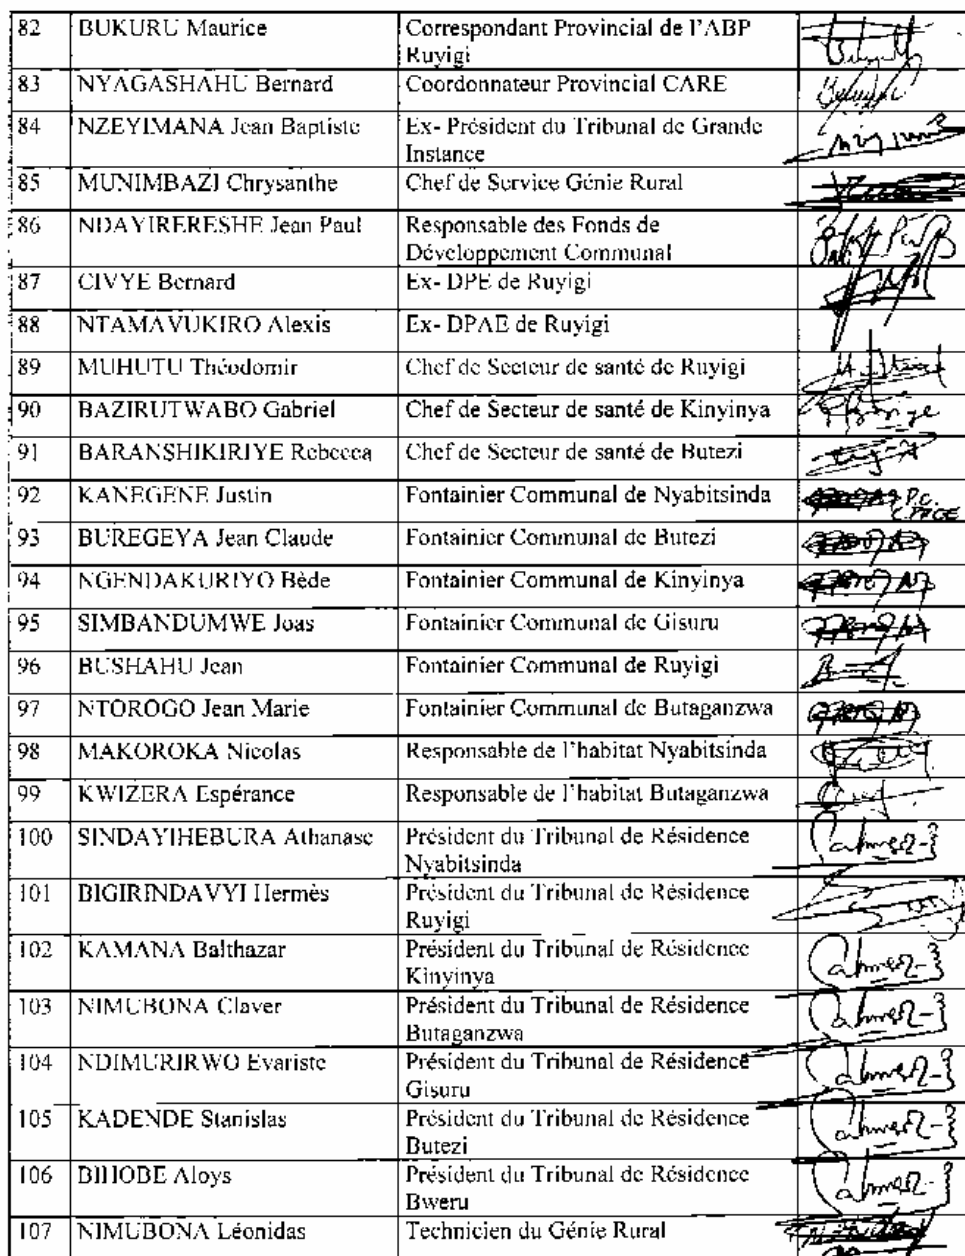 82 BUKURU Maurice Correspondant Provincial de l'ABP
Ruyigi
83 NYAGASHAHU Bernard Coordonnateur Provincial CARE
84 NZEYIMANA Jean Baptiste Ex- Président du Tribunal de Grande
Instance
85 MUNIMBAZI Chrysanthe Chef de Service Génie Rural
86 NDAYIRERESHE Jean Paul Responsable des Fonds de
Développement Communal
87 CIVYE Bernard Ex- DPE de Ruyigi
88 NTAMAVUKIRO Alexis Ex- DPAE de Ruyigi
89 MUHUTU Théodomir Chef de Secteur de santé de Ruyigi
90 BAZIRUTWABO Gabriel Chef de Secteur de santé de Kinyinya
91 BARANSHIKIRIYE Rebecca Chef de Secteur de santé de Butezi
92 KANEGENE Justin Fontainier Communal de Nyabitsinda P.O.
93 BUREGEYA Jean Claude Fontainier Communal de Butezi
94 NGENDAKURIYO Bède Fontainier Communal de Kinyinya
95 SIMBANDUMWE Joas Fontainier Communal de Gisuru
96 BUSHAHU Jean Fontainier Communal de Ruyigi
97 NTOROGO Jean Marie Fontainier Communal de Butaganzwa
98 MAKOROKA Nicolas Responsable de l'habitat Nyabitsinda
99 KWIZERA Espérance Responsable de l'habitat Butaganzwa
100 SINDAYIHEBURA Athanase Président du Tribunal de Résidence
Nyabitsinda
101 BIGIRINDAVYI Hermès Président du Tribunal de Résidence
Ruyigi
102 KAMANA Balthazar Président du Tribunal de Résidence
Kinyinya
103 NIMUBONA Claver Président du Tribunal de Résidence
Butaganzwa
104 NDIMURIRWO Evariste Président du Tribunal de Résidence
Gisuru
105 KADENDE Stanislas Président du Tribunal de Résidence
Butezi
106 BIHOBE Aloys Président du Tribunal de Résidence
Bweru
107 NIMUBONA Léonidas Technicien du Génie Rural